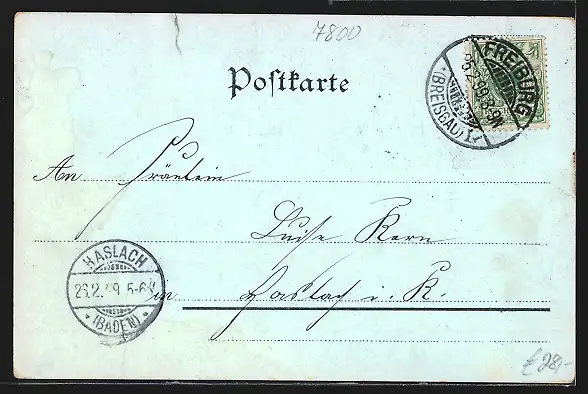 7800
Postkarte
FREIBURG
(BREISGAU)
An Fräulein
Luise Kern
in Haslach i. K.
HASLACH
23.2.99. 5-6N
(BADEN)
€ 28,-